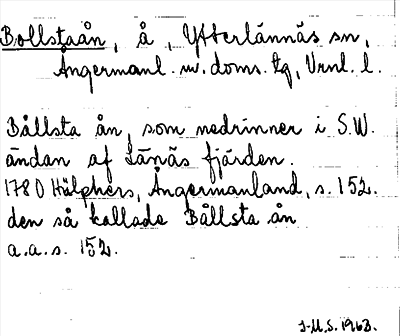 Bollstaån, å, Ytterlännäs sn,
Ångermanl. m. doms. tg, Vrnl. l.
Bållsta ån, som nedrinner i S.W.
ändan af Länäs fjärden.
1780 Hülphers, Ångermanland, s. 152.
den så kallade Bållsta ån
a.a.s. 152.
J-U.S. 1963.